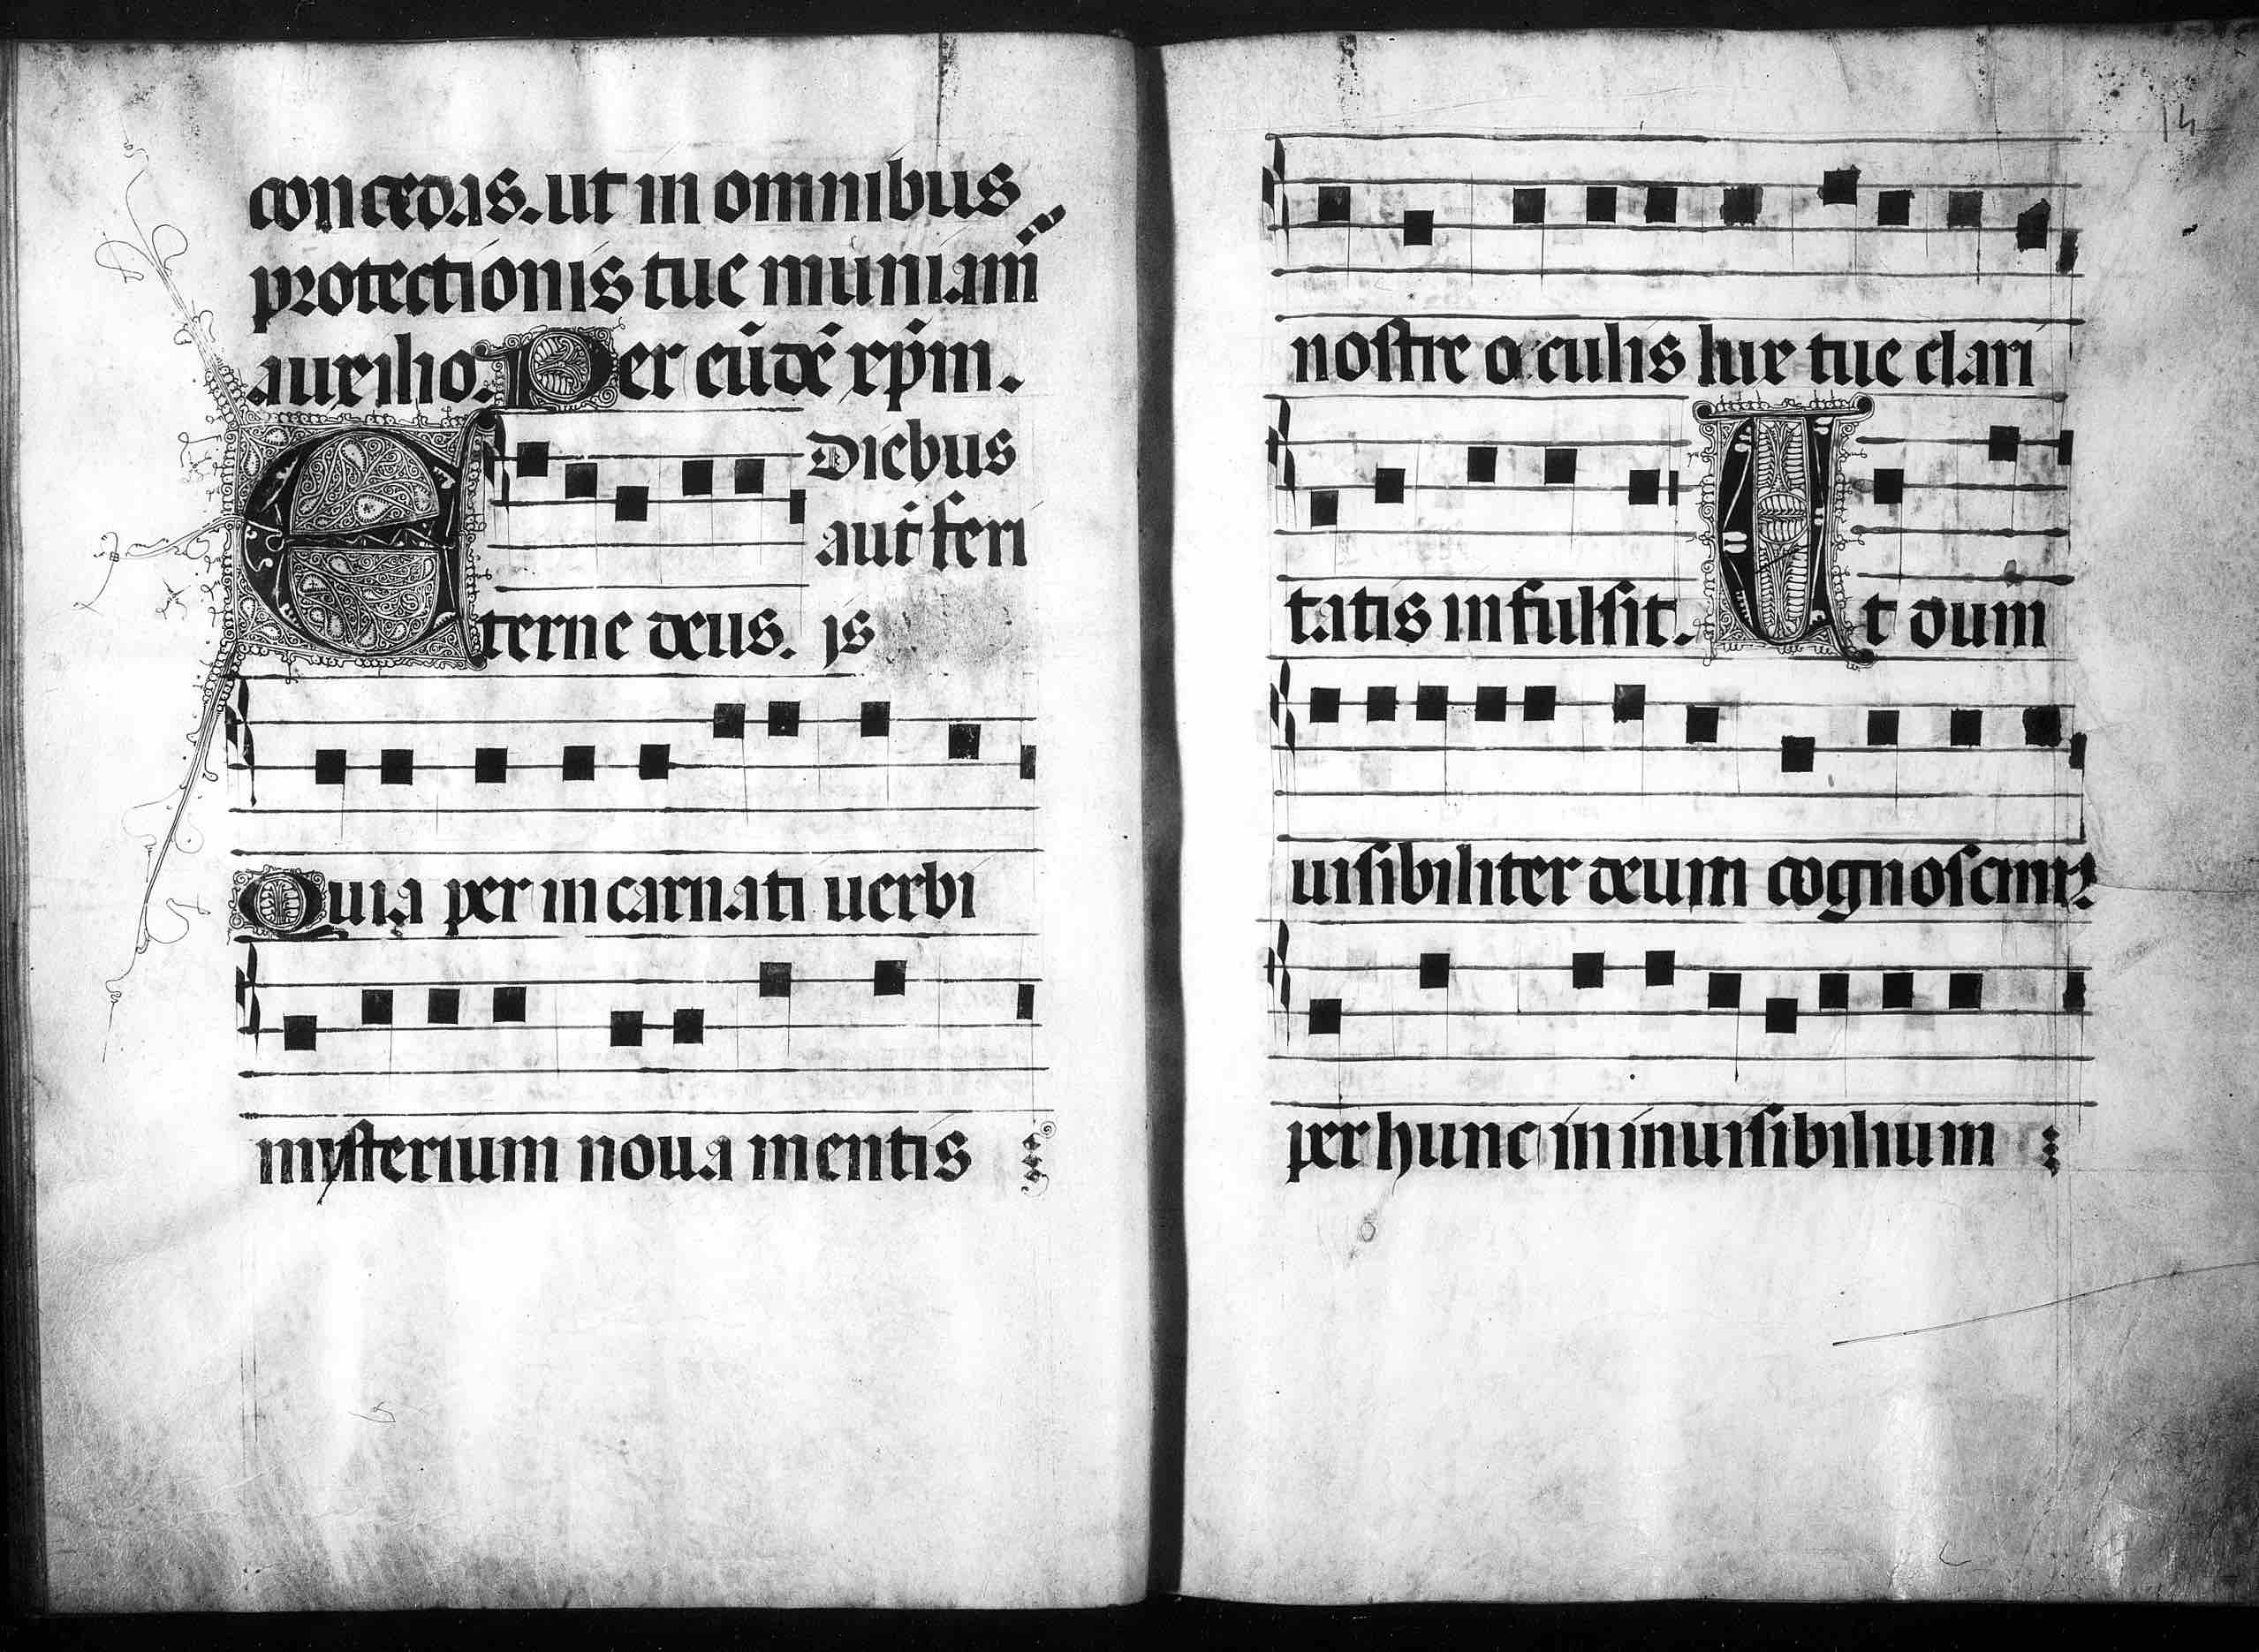 concedas. ut in omnibus
protectionis tue muniam̄
auxilio. Per eūdē xp̄m.
Diebus
aut̄ feri
Eterne deus. js
Quia per incarnati uerbi
mysterium noua mentis
14
nostre oculis lux tue clari
tatis infulsit. Ut dum
uisibiliter deum cognoscimꝰ
per hunc in inuisibilium